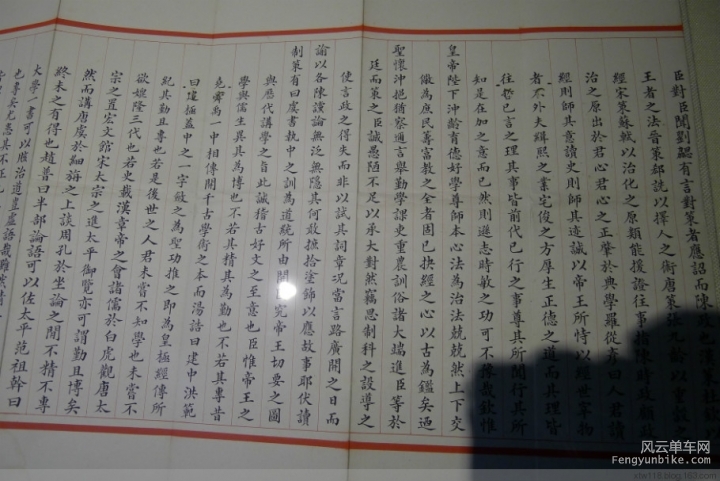 臣對臣聞劉勰有言對策者應詔而陳政也漢策
王者之法晉策郤詵以擇人之術唐策張九齡以重設之
經宋策蘇軾以治化之原類能援證往事指陳時政顧
治之原出於君心君心之正肇於典學羅從彥曰人君讀
經則師其意讀史則師其迹誠以帝王所恃以經世宰物
者不外夫緝熙之業定俊之方厚生正德之道而其理皆
往哲已言之理其事皆前代已行之事尊其所聞行其所
知是在加之意而已然則遜志時敏之功可不懋哉欽惟
皇帝陛下沖齡育德好學尊師本心法為治法兢兢然上下交
儆為庶民籌富教之全者固已抉經之心以古為鑑矣迺
聖懷沖挹猶察邇言舉勤學課吏重農訓俗諸大端進臣等於
廷而策之臣誠愚陋不足以承大對然竊思制科之設導之
使言政之得失而非以試其詞章況當言路廣開之日而
諭以各陳讜論無泛無隱其何敢摭拾塗飾以應故事耶伏讀
制策有曰虞書執中之訓為道統所由開
究帝王切要之圖
與歷代講學之旨此誠稽古好文之至意也臣惟帝王之
學與儒生異其為博也不若其精其為勤也不若其專昔
堯舜禹一中相傳開千古學術之本而湯誥曰建中洪範
曰建極蓋中之一字敬之為聖功推之即為皇極經傳所
紀其勤且專也若是後世之人君未嘗不知學也未嘗不
欲媲隆三代也若史載漢章帝之會諸儒於白虎觀唐太
宗之置宏文館宋太宗之進太平御覽亦可謂勤且博矣
然而講唐虞於細旃之上談周孔於坐論之間不精不專
終未之有得也趙普曰半部論語可以佐太平范祖幹曰
大學一書可以賅治道
風云单车网
Fengyunbike.com